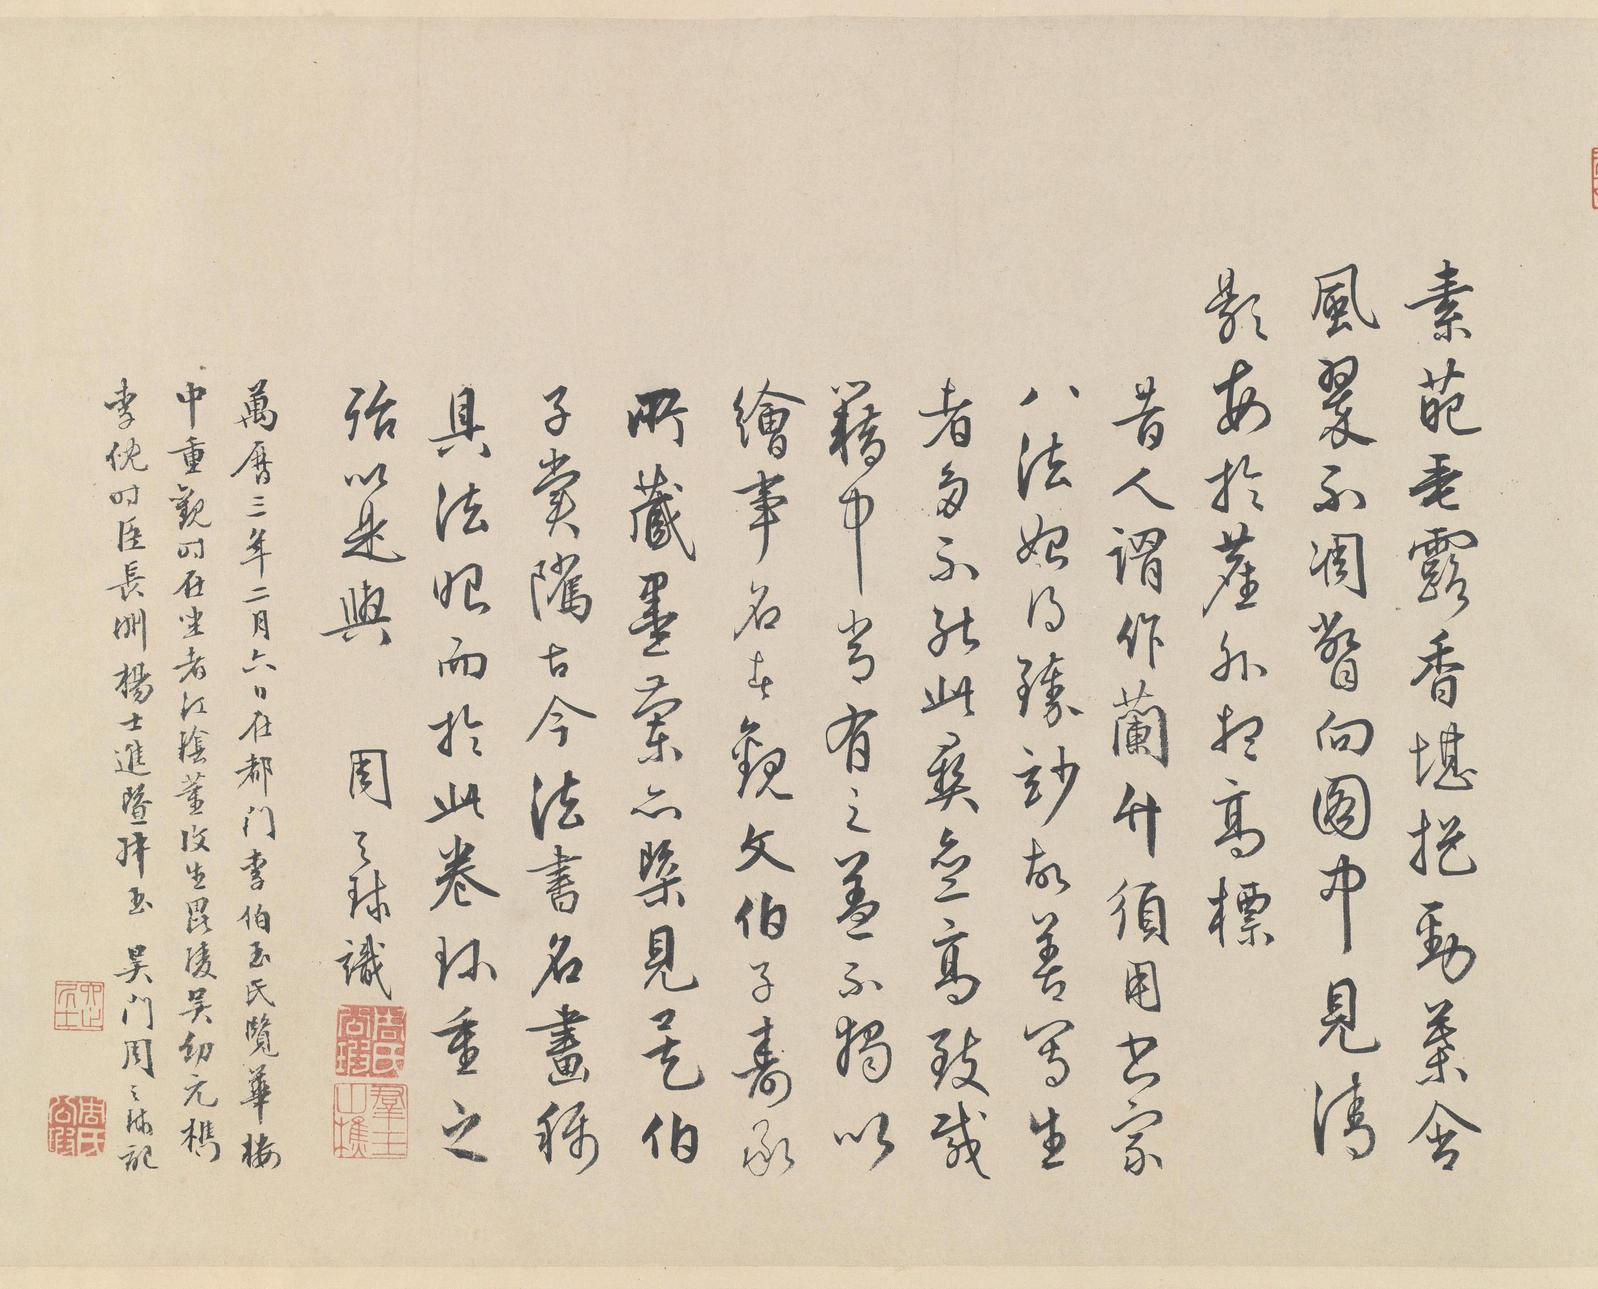 素葩垂露香堪挹勁葉含
風翠不凋暫向圖中見清
影安於塵外想高標
昔人謂作蘭竹須用書家
八法始得臻妙故善寫生
者多不能此蓋高致或
籍中嘗有之蓋不獨以
繪事名者觀文伯子壽承
所藏墨蘭亦槩見是伯
子賞隲古今法書名畫稱
具法眼而於此卷珍重之
殆以是與 周之球識
萬曆三年二月六日在都門李伯玉氏覽華樓
中重觀時在坐者江陰董 生毘陵吳幼元檇
李 時臣長洲楊士進暨 玉 吳門周之球記
周氏公瑕
羣玉山樵
周氏公瑕